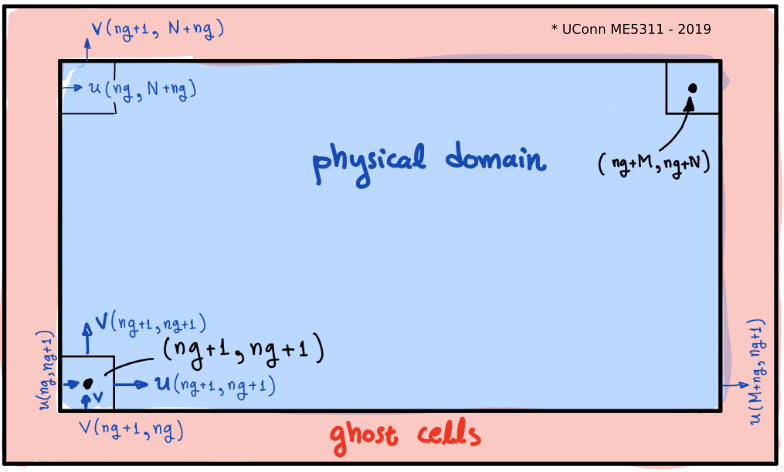 V(ng+1, N+ng)
* UConn ME5311 - 2019
u(ng, N+ng)
physical domain
(ng+M, ng+N)
V(ng+1, ng+1)
(ng+1, ng+1)
u(ng, ng+1)
u(ng+1, ng+1)
V
V(ng+1, ng)
u(M+ng, ng+1)
ghost cells